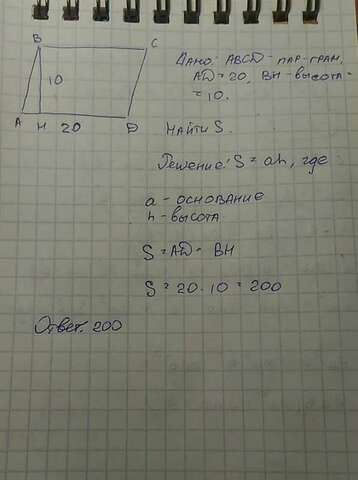 B C
Дано: ABCD - пар-грам,
AD = 20, BH - высота =
10
= 10.
A H 20 D
Найти S.
Решение: S = ah, где:
a - основание
h - высота
S = AD · BH
S = 20 · 10 = 200
Ответ: 200